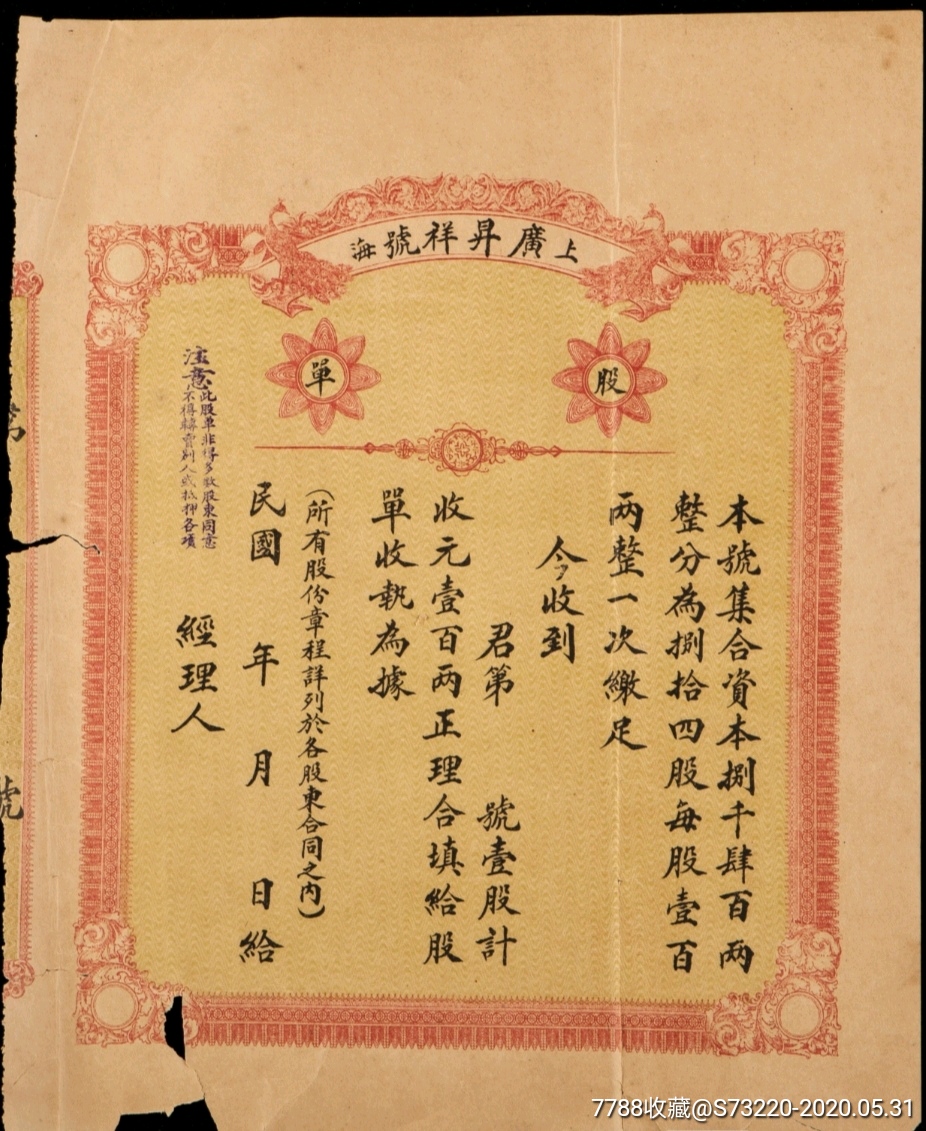 上廣昇祥號海
股單
本號集合資本捌千肆百两
整分為捌拾四股每股壹百
两整一次繳足
今收到
君第 號壹股計
收元壹百两正理合填給股
單收執為據
(所有股份章程詳列於各股東合同之内)
民國 年 月 日給
經理人
注意
此股單非得多数股東同意
不得轉賣别人或抵押各項
號
7788收藏@S73220-2020.05.31